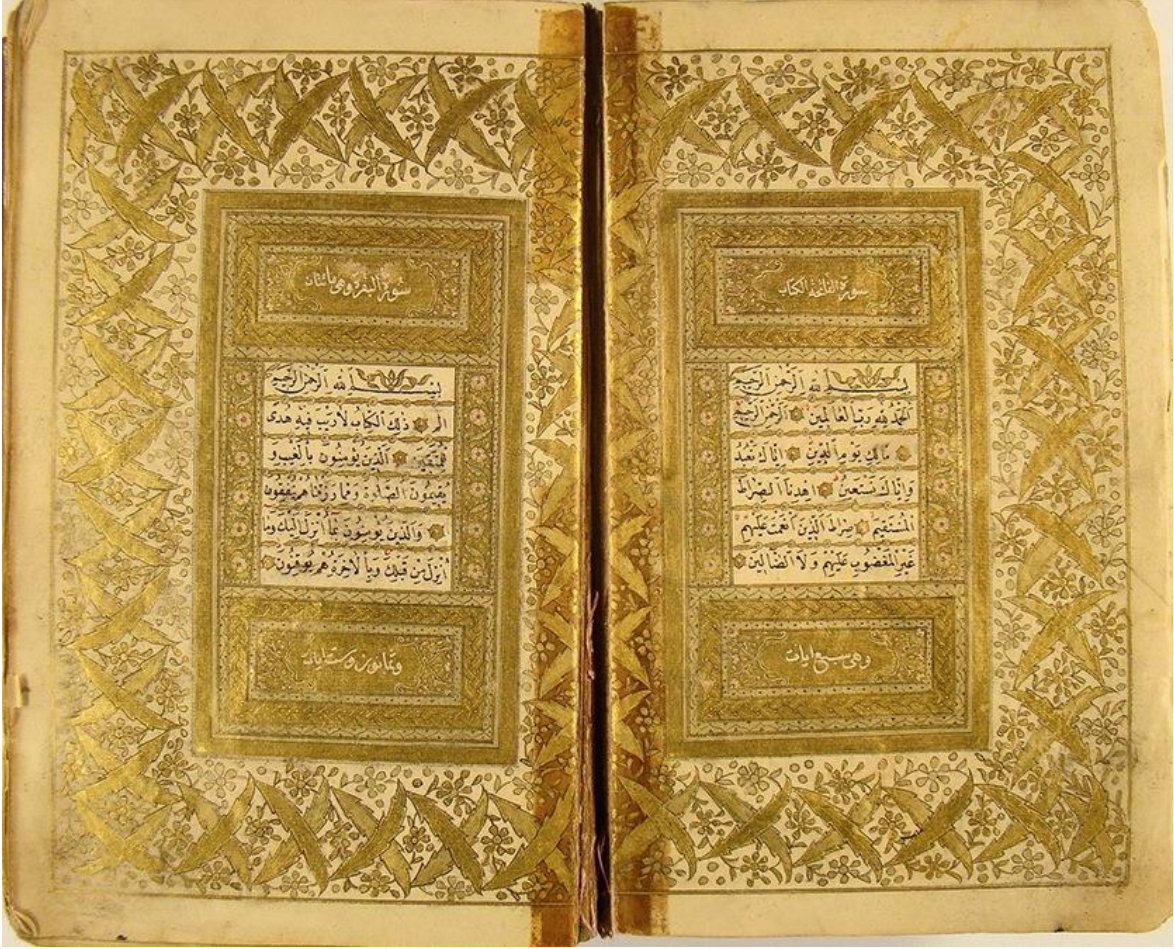 سورة الفاتحة الكتاب
بِسْمِ اللّٰهِ الرَّحْمٰنِ الرَّحِيمِ
اَلْحَمْدُ لِلّٰهِ رَبِّ الْعَالَمِينَ اَلرَّحْمٰنِ الرَّحِيمِ
مَالِكِ يَوْمِ الدِّينِ اِيَّاكَ نَعْبُدُ
وَاِيَّاكَ نَسْتَعِينُ اِهْدِنَا الصِّرَاطَ
الْمُسْتَقِيمَ صِرَاطَ الَّذِينَ اَنْعَمْتَ عَلَيْهِمْ
غَيْرِ الْمَغْضُوبِ عَلَيْهِمْ وَلَا الضَّالِّينَ
وهى سبع ايات
سورة البقرة وهى مائتان
بِسْمِ اللّٰهِ الرَّحْمٰنِ الرَّحِيمِ
الم ذٰلِكَ الْكِتَابُ لَا رَيْبَ فِيهِ هُدًى
لِلْمُتَّقِينَ اَلَّذِينَ يُؤْمِنُونَ بِالْغَيْبِ وَ
يُقِيمُونَ الصَّلٰوةَ وَمِمَّا رَزَقْنَاهُمْ يُنْفِقُونَ
وَالَّذِينَ يُؤْمِنُونَ بِمَا اُنْزِلَ اِلَيْكَ وَمَا
اُنْزِلَ مِنْ قَبْلِكَ وَبِالْاٰخِرَةِ هُمْ يُوقِنُونَ
وثمانون وست ايات